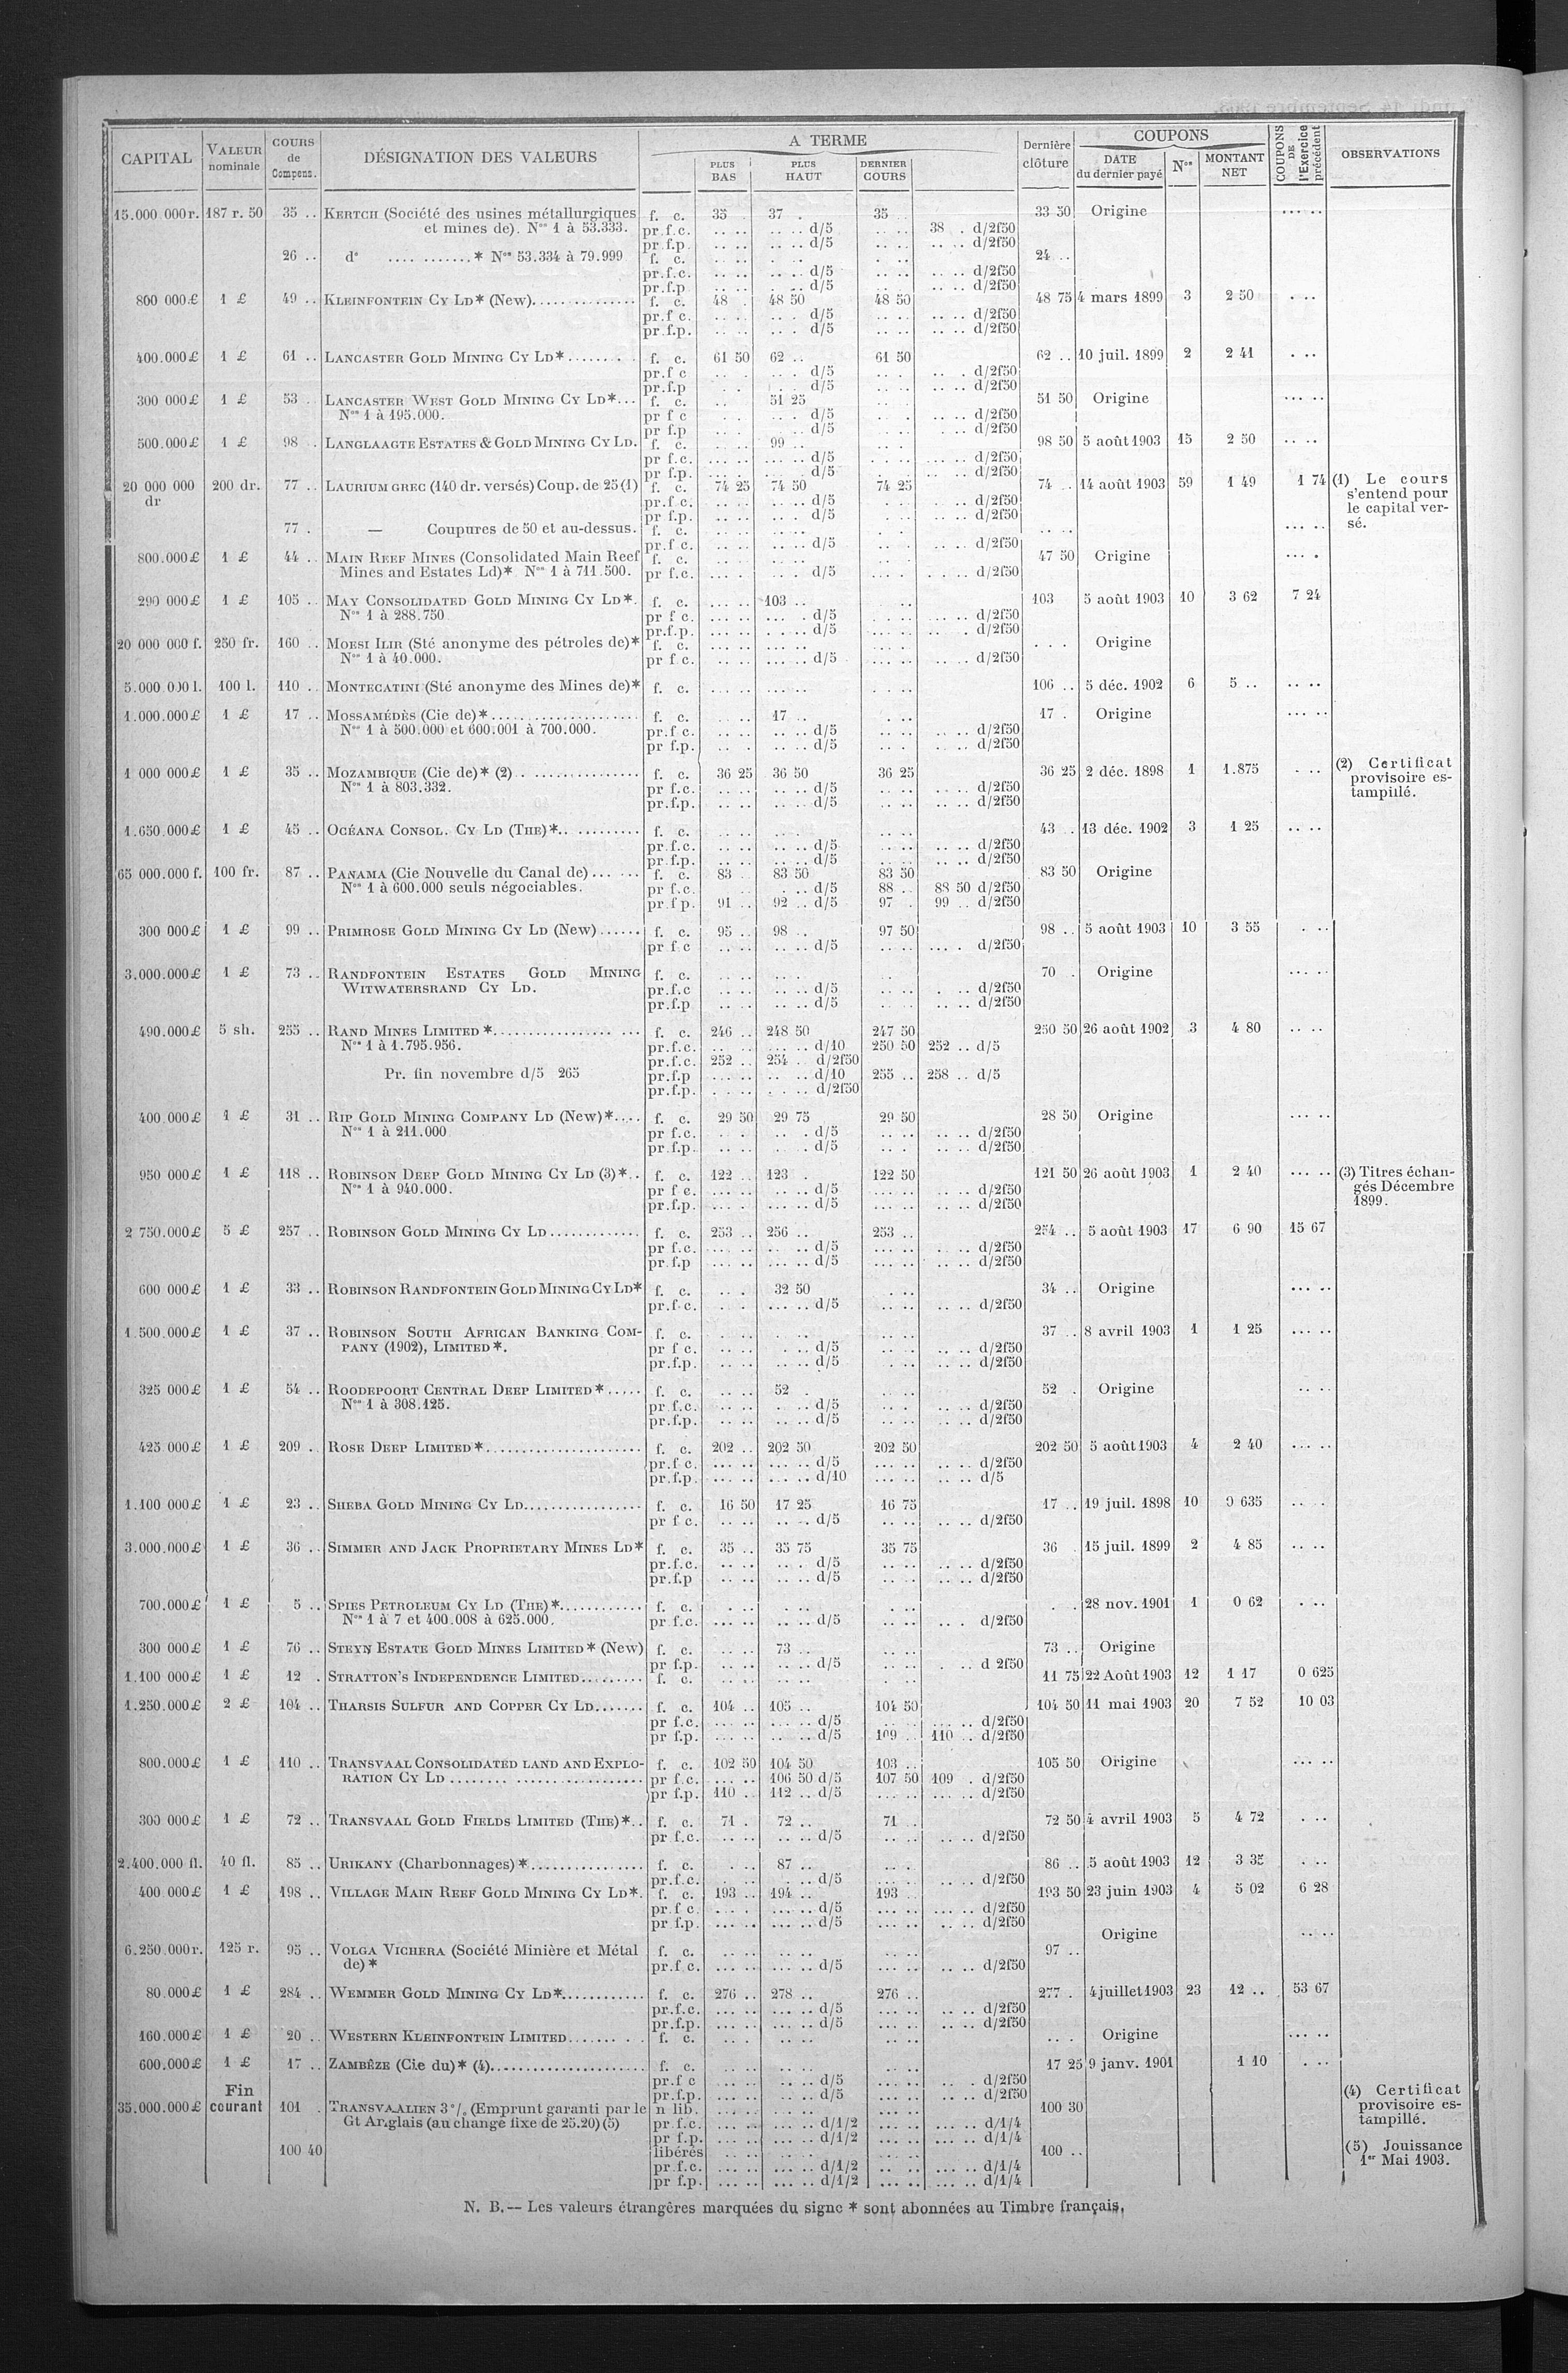 CAPITAL VALEUR nominale COURS de Compens. DÉSIGNATION DES VALEURS A TERME PLUS BAS PLUS HAUT DERNIER COURS Dernière clôture COUPONS DATE du dernier payé Nos MONTANT NET COUPONS DE l'Exercice précédent OBSERVATIONS
15.000 000r. 187 r. 50 35 .. KERTCH (Société des usines métallurgiques f. c. 35 37 . 35 33 50 Origine ... ..
et mines de). Nos 1 à 53.333. pr.f.c. .. .. .. .. d/5 .. .. 38 . d/2f50
pr f.p. .. .. .. .. d/5 .. .. .. .. d/2f50
26 .. do .... .......* Nos 53.334 à 79.999 f. c. 24 ..
pr.f.c. .. .. .. .. d/5 .. .. d/2f50
pr.f.p .. .. d/5 .. .. d/2f50
800 000£ 1 £ 49 .. KLEINFONTEIN CY LD* (New).............. f. c. 48 48 50 48 50 48 75 4 mars 1899 3 2 50 . ..
pr.f c. d/5 d/2f50
pr.f.p. d/5 d/2f50
400.000£ 1 £ 61 .. LANCASTER GOLD MINING CY LD*........ f. c. 61 50 62 .. 61 50 62 .. 10 juil. 1899 2 2 41 . ..
pr.f c d/5 d/2f50
pr.f.p d/5 d/2f50
300 000£ 1 £ 53 . LANCASTER WEST GOLD MINING CY LD*... f. c. 51 25 51 50 Origine ... ..
Nos 1 à 195.000. pr f c d/5 d/2f50
pr f.p d/5 d/2f50
500.000£ 1 £ 98 . LANGLAAGTE ESTATES & GOLD MINING CY LD. f. c. 99 .. 98 50 5 août 1903 15 2 50 .. ..
pr f.c. d/5 d/2f50
pr f.p. d/5 d/2f50
20 000 000 200 dr. 77 .. LAURIUM GREC (140 dr. versés) Coup. de 25 (1) f. c. 74 25 74 50 74 25 74 .. 14 août 1903 59 1 49 1 74 (1) Le cours
dr pr.f c. d/5 d/2f50 s'entend pour
pr f.p. d/5 d/2f50 le capital ver-
77 . — Coupures de 50 et au-dessus. f. c. ... .. sé.
pr.f c. d/5 d/2f50
800.000£ 1 £ 44 .. MAIN REEF MINES (Consolidated Main Reef f. c. 47 50 Origine ... .
Mines and Estates Ld)* Nos 1 à 711.500. pr f.c. d/5 d/2f50
290 000£ 1 £ 105 .. MAY CONSOLIDATED GOLD MINING CY LD*. f. c. 103 .. 103 5 août 1903 10 3 62 7 24
Nos 1 à 288.750 pr f c. d/5 d/2f50
pr.f.p. d/5 d/2f50
20 000 000 f. 250 fr. 160 .. MOESI ILIR (Sté anonyme des pétroles de)* f. c. . . . Origine
Nos 1 à 40.000. pr f c. d/5 d/2f50
5.000 000 l. 100 l. 110 .. MONTECATINI (Sté anonyme des Mines de)* f. c. 106 .. 5 déc. 1902 6 5 .. .. ..
1.000.000£ 1 £ 17 .. MOSSAMÉDÈS (Cie de)*..................... f. c. 17 .. 17 . Origine ... ..
Nos 1 à 500.000 et 600.001 à 700.000. pr.f c. d/5 d/2f50
pr f.p. d/5 d/2f50
1 000 000£ 1 £ 35 .. MOZAMBIQUE (Cie de)* (2) . ................ f. c. 36 25 36 50 36 25 36 25 2 déc. 1898 1 1.875 . .. (2) Certificat
Nos 1 à 803.332. pr f.c. d/5 d/2f50 provisoire es-
pr.f.p. d/5 d/2f50 tampillé.
1.650.000£ 1 £ 45 .. OCÉANA CONSOL. CY LD (THE)*.. ......... f. c. 43 . 13 déc. 1902 3 1 25 .. ..
pr.f.c. d/5 d/2f50
pr.f.p. d/5 d/2f50
65 000.000 f. 100 fr. 87 .. PANAMA (Cie Nouvelle du Canal de) ... ... f. c. 83 . 83 50 83 50 83 50 Origine
Nos 1 à 600.000 seuls négociables. pr f.c. d/5 88 .. 88 50 d/2f50
pr.f p. 91 .. 92 .. d/5 97 . 99 .. d/2f50
300 000£ 1 £ 99 .. PRIMROSE GOLD MINING CY LD (New) ...... f. c. 95 .. 98 .. 97 50 98 .. 5 août 1903 10 3 55 . ..
pr f c d/5 d/2f50
3.000.000£ 1 £ 73 .. RANDFONTEIN ESTATES GOLD MINING f. c. 70 . Origine ... ..
WITWATERSRAND CY LD. pr.f.c d/5 d/2f50
pr.f.p d/5 d/2f50
490.000£ 5 sh. 255 .. RAND MINES LIMITED *.................. ... f. c. 246 .. 248 50 247 50 250 50 26 août 1902 3 4 80 .. ..
Nos 1 à 1.795.956. pr.f.c. d/10 250 50 252 .. d/5
pr.f.c. 252 .. 254 . d/2f50
Pr. fin novembre d/5 265 pr.f.p d/10 255 .. 258 .. d/5
pr.f.p. d/2f50
400.000£ 1 £ 31 .. RIP GOLD MINING COMPANY LD (New)*.... f. c. 29 50 29 75 29 50 28 50 Origine ... ..
Nos 1 à 211.000 pr f.c. d/5 d/2f50
pr.f.p. d/5 d/2f50
950 000£ 1 £ 118 .. ROBINSON DEEP GOLD MINING CY LD (3)*.. f. c. 122 .. 123 . 122 50 121 50 26 août 1903 1 2 40 ... .. (3) Titres échan-
Nos 1 à 940.000. pr f c. d/5 d/2f50 gés Décembre
pr.f.p. d/5 d/2f50 1899.
2 750.000£ 5 £ 257 .. ROBINSON GOLD MINING CY LD ............. f. c. 253 .. 256 .. 253 .. 254 .. 5 août 1903 17 6 90 15 67
pr f.c. d/5 d/2f50
pr.f.p d/5 d/2f50
600 000£ 1 £ 33 .. ROBINSON RANDFONTEIN GOLD MINING CY LD* f. c. 32 50 34 .. Origine ... ..
pr.f.c. d/5 d/2f50
1.500.000£ 1 £ 37 .. ROBINSON SOUTH AFRICAN BANKING COM- f. c. 37 .. 8 avril 1903 1 1 25 ... ..
PANY (1902), LIMITED*. pr f c. d/5 d/2f50
pr.f.p. d/5 d/2f50
325 000£ 1 £ 54 .. ROODEPOORT CENTRAL DEEP LIMITED*..... f. c. 52 . 52 . Origine .. ..
Nos 1 à 308.125. pr.f.c. d/5 d/2f50
pr.f.p. d/5 d/2f50
425 000£ 1 £ 209 .. ROSE DEEP LIMITED*...................... f. c. 202 .. 202 50 202 50 202 50 5 août 1903 4 2 40 ... ..
pr.f c. d/5 d/2f50
pr.f.p. d/10 d/5
1.100 000£ 1 £ 23 .. SHEBA GOLD MINING CY LD................ f. c. 16 50 17 25 16 75 17 .. 19 juil. 1898 10 0 635 .. ..
pr f c. d/5 d/2f50
3.000.000£ 1 £ 36 .. SIMMER AND JACK PROPRIETARY MINES LD* f. c. 35 .. 35 75 35 75 36 . 15 juil. 1899 2 4 85 .. ..
pr.f.c. d/5 d/2f50
pr.f.p d/5 d/2f50
700.000£ 1 £ 5 .. SPIES PETROLEUM CY LD (THE)*............ f. c. 28 nov. 1901 1 0 62 . ..
Nos 1 à 7 et 400.008 à 625.000. pr f.c. d/5 d/2f50
300 000£ 1 £ 76 .. STEYN ESTATE GOLD MINES LIMITED * (New) f. c. 73 .. 73 .. Origine
pr f.p. d/5 d 2f50
1.100 000£ 1 £ 12 . STRATTON'S INDEPENDENCE LIMITED......... f. c. 11 75 22 Août 1903 12 1 17 0 625
1.250.000£ 2 £ 104 .. THARSIS SULFUR AND COPPER CY LD....... f. c. 104 .. 105 .. 104 50 104 50 11 mai 1903 20 7 52 10 03
pr f.c. d/5 d/2f50
pr f.p. d/5 109 .. 110 .. d/2f50
800.000£ 1 £ 110 .. TRANSVAAL CONSOLIDATED LAND AND EXPLO- f. c. 102 50 104 50 103 .. 105 50 Origine ... ..
RATION CY LD ........ .................. pr f.c. 106 50 d/5 107 50 109 . d/2f50
pr f.p. 110 .. 112 .. d/5 d/2f50
300 000£ 1 £ 72 .. TRANSVAAL GOLD FIELDS LIMITED (THE)*.. f. c. 71 . 72 .. 71 .. 72 50 4 avril 1903 5 4 72 . ..
pr f.c. d/5 d/2f50
2.400.000 fl. 40 fl. 85 .. URIKANY (Charbonnages)*................ f. c. 87 .. 86 .. 5 août 1903 12 3 35 . ..
pr.f.c. d/5 d/2f50
400 000£ 1 £ 198 .. VILLAGE MAIN REEF GOLD MINING CY LD*. f. c. 193 .. 194 .. 193 .. 193 50 23 juin 1903 4 5 02 6 28
pr.f c. d/5 d/2f50
pr f.p. d/5 d/2f50
Origine .. ..
6.250.000r. 125 r. 95 .. VOLGA VICHERA (Société Minière et Métal f. c. 97 ..
de)* pr.f c. d/5 d/2f50
80.000£ 1 £ 284 .. WEMMER GOLD MINING CY LD*............ f. c. 276 .. 278 .. 276 .. 277 . 4 juillet 1903 23 12 .. 53 67
pr.f.c. d/5 d/2f50
pr.f.p. d/5 d/2f50
160.000£ 1 £ 20 .. WESTERN KLEINFONTEIN LIMITED....... . . f. c. Origine ... ..
600.000£ 1 £ 17 .. ZAMBÈZE (Cie du)* (4)...................... f. c. 17 25 9 janv. 1901 1 10 . ..
pr.f c d/5 d/2f50
Fin pr.f.p. d/5 d/2f50 (4) Certificat
35.000.000£ courant 101 . TRANSVAALIEN 3 % (Emprunt garanti par le n lib. 100 30 provisoire es-
Gt Anglais (au change fixe de 25.20) (5) pr f.c. d/1/2 d/1/4 tampillé.
pr f.p. d/1/2 d/1/4
100 40 libérés 100 .. (5) Jouissance
pr.f.c. d/1/2 d/1/4 1er Mai 1903.
pr f.p. d/1/2 d/1/4
N. B.— Les valeurs étrangères marquées du signe * sont abonnées au Timbre français.